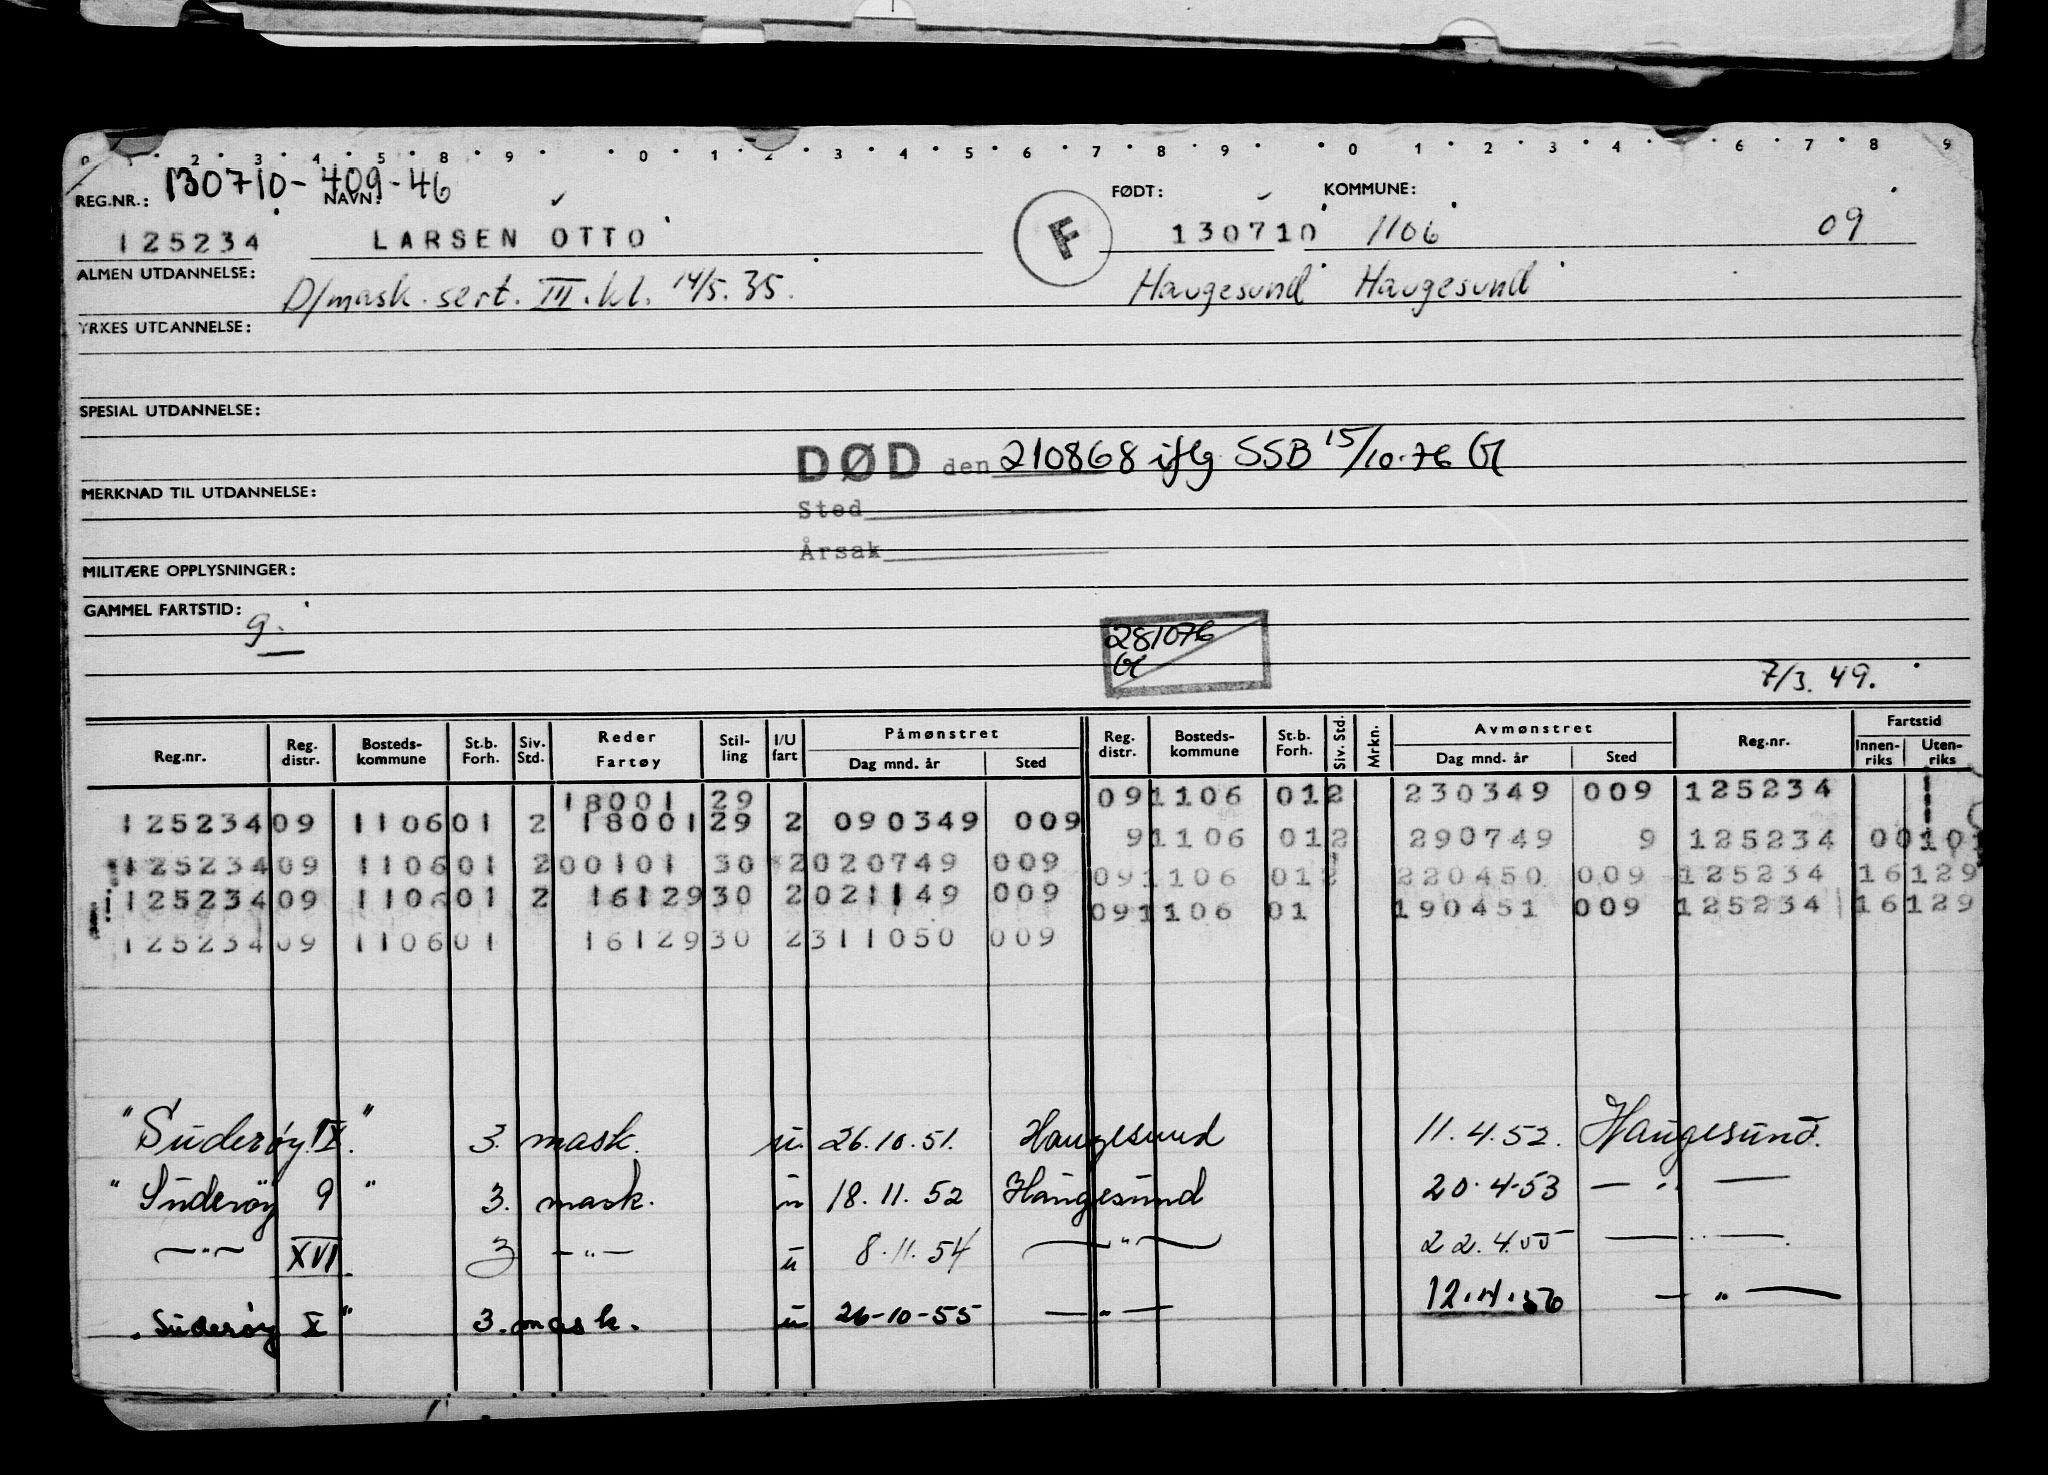 0 1 2 3 4 5 8 9 0 1 2 3 4 5 6 7 8 9 0 1 2 3 4 6 7 8 9
130710-409-46
REG.NR.: NAVN: FØDT: KOMMUNE:
125234 LARSEN OTTO F 130710 1106 09
ALMEN UTDANNELSE: D/mask. sert. III. kl. 14/5. 35. Haugesund Haugesund
YRKES UTDANNELSE:
SPESIAL UTDANNELSE:
DØD den 210868 iflg SSB 15/10-76
MERKNAD TIL UTDANNELSE:
Sted
Årsak
MILITÆRE OPPLYSNINGER:
GAMMEL FARTSTID: g.
281076
7/3. 49.
Reg.nr. Reg. distr. Bosteds-kommune St.b. Forh. Siv. Std. Reder Fartøy Stil-ling I/U fart Påmønstret Dag mnd. år Sted Reg. distr. Bosteds-kommune St.b. Forh. Siv. Std. Mrkn. Avmønstret Dag mnd. år Sted Reg.nr. Fartstid Innen-riks Uten-riks
18001 29 09 1106 01 2 230349 009 125234
125234 09 1106 01 2 18001 29 2 090349 009
9 1106 01 2 290749 9 125234 00 10
125234 09 1106 01 2 00101 30 2 020749 009
09 1106 01 2 220450 009 125234 16129
125234 09 1106 01 2 16129 30 2 021149 009
09 1106 01 190451 009 125234 16129
125234 09 1106 01 16129 30 2 311050 009
"Suderøy IX." 3. mask. u. 26.10.51. Haugesund 11.4.52. Haugesund.
"Suderøy 9" 3. mask. u 18.11.52 Haugesund 20.4.53 — " —
—"— XVI. 3 —"— u 8.11.54 —"— 22.4.55 — " —
"Suderøy X" 3. mask. u 26-10-55 —"— 12.4.56 — " —